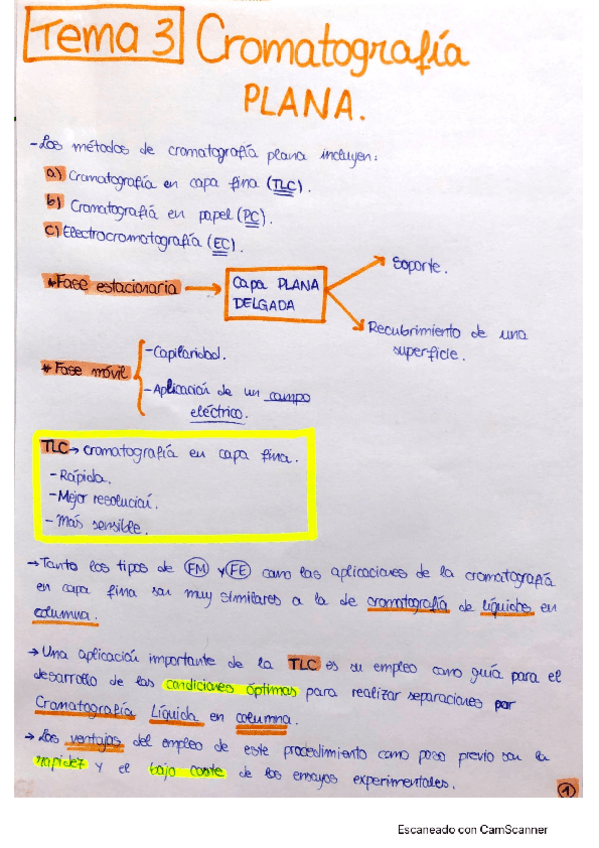 Tema 3 Cromatografía
PLANA.
- Los métodos de cromatografía plana incluyen:
a) Cromatografía en capa fina (TLC).
b) Cromatografía en papel (PC).
c) Electrocromatografía (EC).
* Fase estacionaria → Capa PLANA
DELGADA
Soporte.
Recubrimiento de una
superficie.
* Fase móvil
- Capilaridad.
- Aplicación de un campo
eléctrico.
TLC → cromatografía en capa fina.
- Rápida.
- Mejor resolución.
- Más sensible.
→ Tanto los tipos de FM y FE como las aplicaciones de la cromatografía
en capa fina son muy similares a la de cromatografía de líquidos en
columna.
→ Una aplicación importante de la TLC es su empleo como guía para el
desarrollo de las condiciones óptimas para realizar separaciones por
Cromatografía Líquida en columna.
→ Las ventajas del empleo de este procedimiento como paso previo son la
rapidez y el bajo coste de los ensayos experimentales.
1
Escaneado con CamScanner